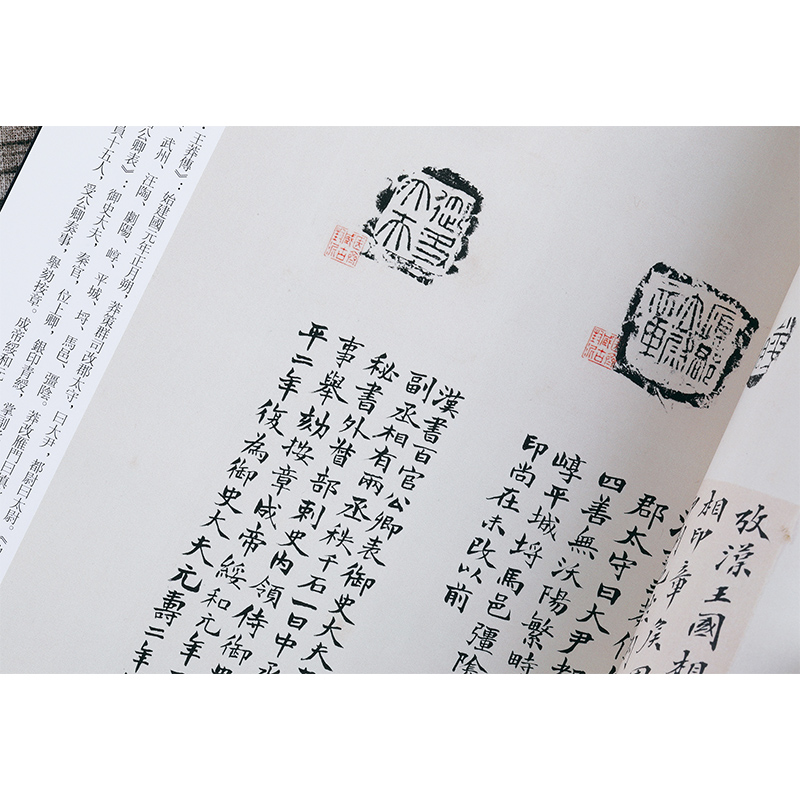 攷漢王國相
相印章
郡太守曰大尹都
四善無沃陽繁畤
崞平城埒馬邑彊陰
印尚在未改以前
御史大夫
漢書百官公卿表御史大夫
副丞相有兩丞秩千石一曰中丞
秘書外督部刺史內領侍御
事舉劾按章成帝綏和元年
平二年復為御史大夫元壽二年
·王莽傳》：始建國元年正月朔，莽策群司改郡太守，曰大尹，都尉曰太尉。
、武州、汪陶、劇陽、崞、平城、埒、馬邑、彊陰。莽改雁門曰填
公卿表》：御史大夫，秦官，位上卿，銀印青綬，掌副
員十五人，受公卿奏事，舉劾按章。成帝綏和元